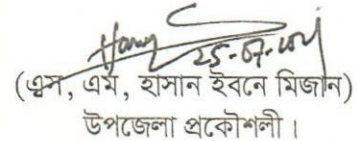 25-07-
(এস, এম, হাসান ইবনে মিজান)
উপজেলা প্রকৌশলী।